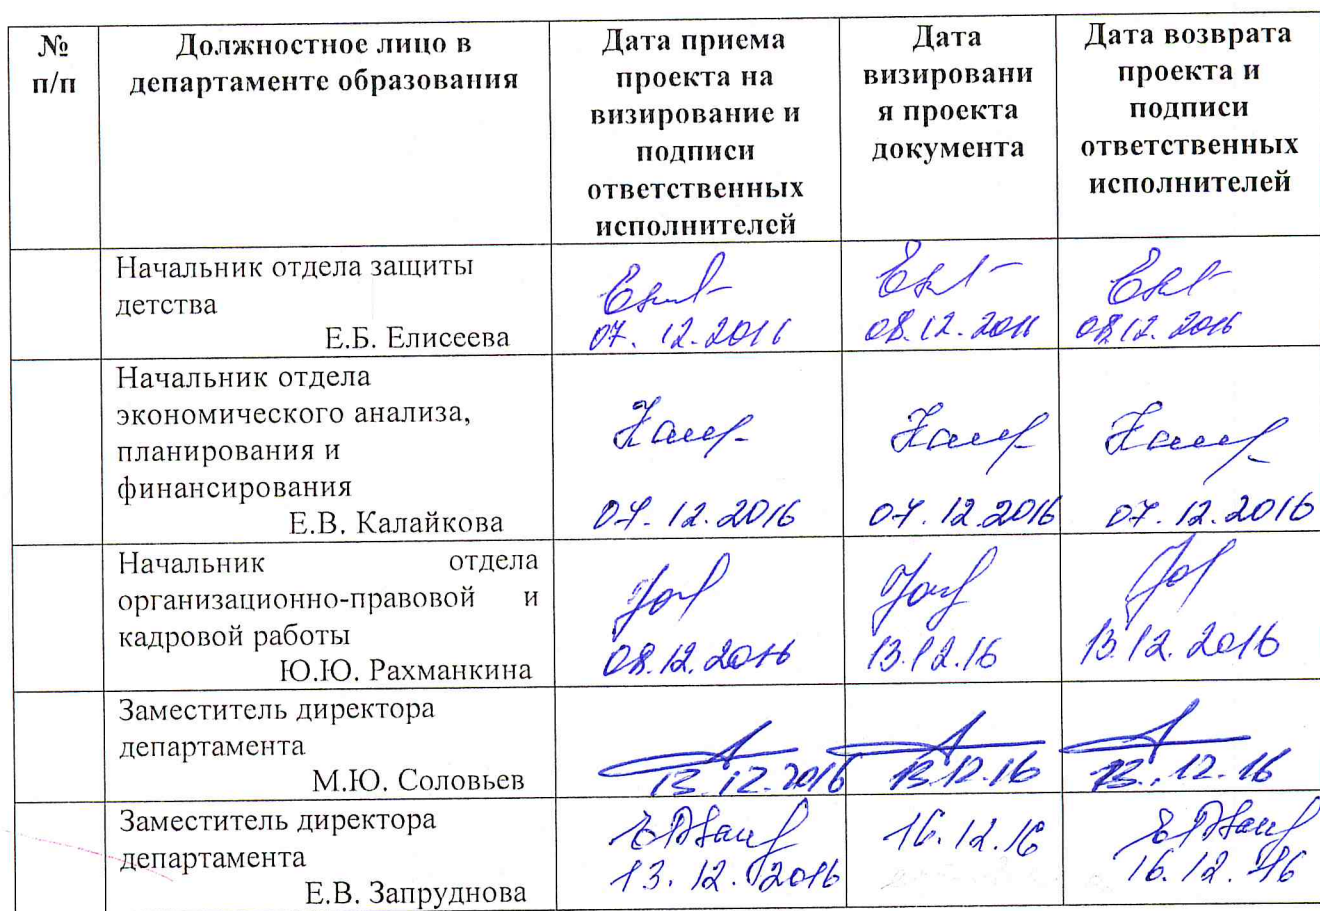 №
п/п
Должностное лицо в
департаменте образования
Дата приема
проекта на
визирование и
подписи
ответственных
исполнителей
Дата
визировани
я проекта
документа
Дата возврата
проекта и
подписи
ответственных
исполнителей
Начальник отдела защиты
детства
Е.Б. Елисеева
07.12.2016
08.12.2016
08.12.2016
Начальник отдела
экономического анализа,
планирования и
финансирования
Е.В. Калайкова
07.12.2016
07.12.2016
07.12.2016
Начальник отдела
организационно-правовой и
кадровой работы
Ю.Ю. Рахманкина
08.12.2016
13.12.16
13.12.2016
Заместитель директора
департамента
М.Ю. Соловьев
13.12.2016
13.12.16
13.12.16
Заместитель директора
департамента
Е.В. Запруднова
13.12.2016
16.12.16
16.12.16